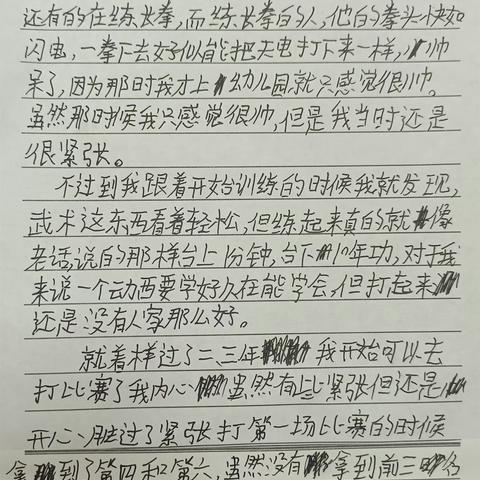 还有的在练长拳,而练长拳的人,他的拳头快如
闪电,一拳下去好似能把天电打下来一样,小帅
呆了,因为那时我才上幼儿园就只感觉很帅。
虽然那时候我只感觉很帅,但是我当时还是
很紧张。
不过到我跟着开始训练的时候我就发现,
武术这东西看着轻松,但练起来真的就像
老话说的那样台上1分钟,台下10年功,对于我
来说一个动西要学好久在能学会,但打起来
还是没有人家那么好。
就着样过了二、三年我开始可以去
打比赛了我内心虽然有比紧张但还是
开心、胜过了紧张打第一场比赛的时候
拿到了第四和第六,虽然没有拿到前三名